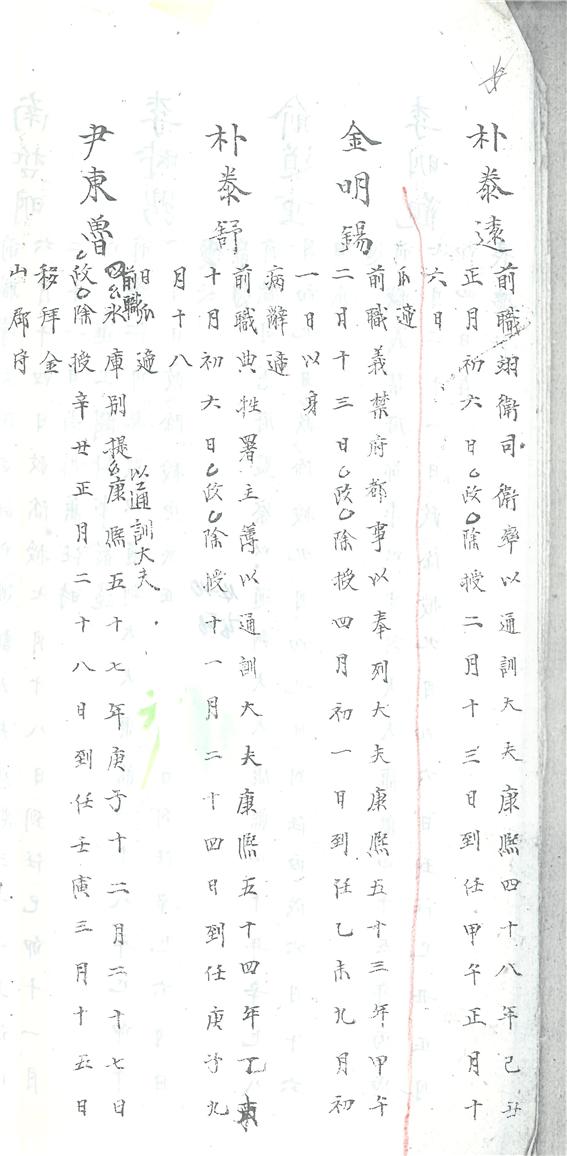 朴泰遠
前職翊衛司衛率以通訓大夫康熙四十八年己丑
正月初六日政除授二月十三日到任甲午正月十
六日
瓜遞
金明錫
前職義禁府都事以奉列大夫康熙五十三年甲午
二月十三日政除授四月初一日到任乙未九月初
一日以身
病辭遞
朴泰舒
前職典牲署主簿以通訓大夫康熙五十四年乙未
十月初六日政除授十一月二十四日到任庚子九
月十八
日瓜遞
尹東魯
前職氷庫別提以通訓大夫康熙五十七年庚子十二月二十七日
政除授辛丑正月二十八日到任壬寅三月十五日
移拜金
山郡守